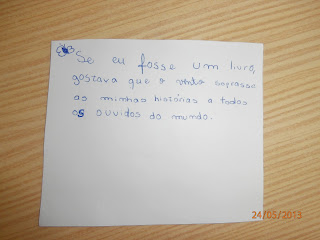 Se eu fosse um livro,
gostava que o vento soprasse
as minhas histórias a todos
os ouvidos do mundo.
24/05/2013